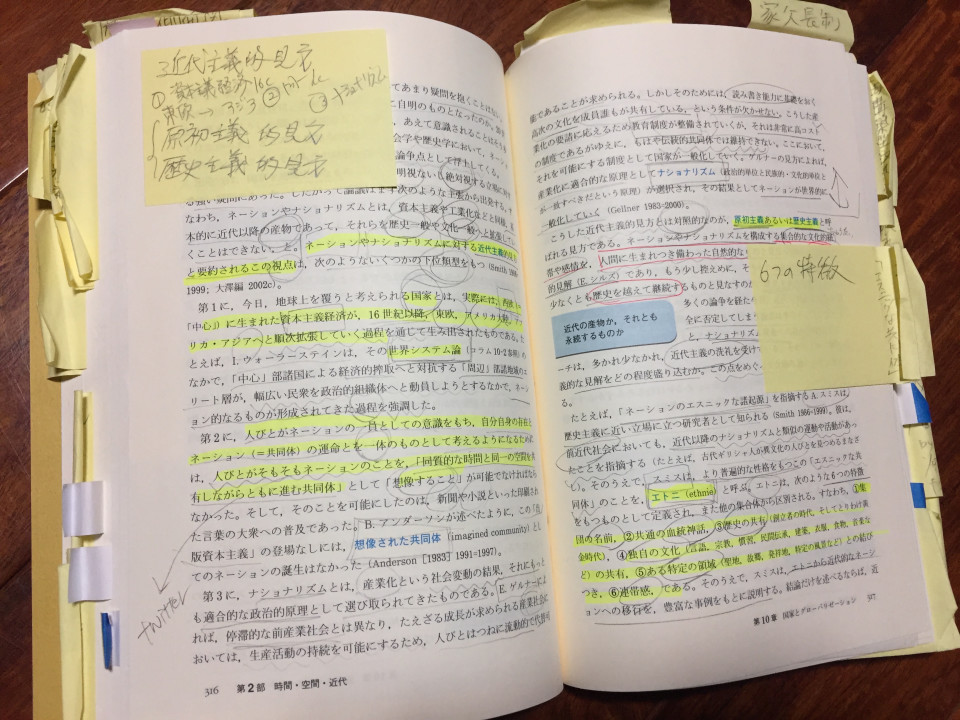 近代主義的見方
① 資本主義経済 16c
東欧→アジア
原初主義的見方
歴史主義的見方
てあまり疑問を抱くことはない
に自明のものとなったのか。
あえて意識されることは
会学や歴史学において、ネー
論争点として浮上してくる。
明視されない絶対視する立場に対す
なわち、ネーションやナショナリズムとは、資本主義や工業化などと同様、基
本的に近代以降の産物であって、それらを歴史一般や文化一般へと拡張して
ことはできない、と。ネーションやナショナリズムに対する近代主義的見方
と要約されるこの視点は、次のようないくつかの下位類型をもつ(Smith 1986-
1999; 大澤編 2002c)。
第1に、今日、地球上を覆うと考えられる国家とは、実際には、西欧(=
「中心」)に生まれた資本主義経済が、16世紀以降、東欧、アメリカ大陸、アフ
リカ・アジアへと順次拡張していく過程を通じて生み出されたものである。た
とえば、I. ウォーラーステインは、その世界システム論(コラム10-2参照)の
なかで、「中心」部諸国による経済的搾取へと対抗する「周辺」部諸地域のエ
リート層が、幅広い民衆を政治的組織体へと動員しようとするなかで、ネーシ
ョン的なるものが形成されてきた過程を強調した。
第2に、人びとがネーションの一員としての意識をもち、自分自身の存在と
ネーション(=共同体)の運命とを一体のものとして考えるようになるために
は、人びとがそもそもネーションのことを、「同質的な時間と同一の空間を共
有しながらともに進む共同体」として「想像すること」が可能でなければなら
なかった。そして、そのことを可能にしたのは、新聞や小説といった印刷され
た言葉の大衆への普及であった。B. アンダーソンが述べたように、この「出
版資本主義」の登場なしには、想像された共同体(imagined community)とし
てのネーションの誕生はなかった(Anderson [1983] 1991-1997)。
第3に、ナショナリズムとは、産業化という社会変動の結果、それにもっと
も適合的な政治的原理として選び取られてきたものである。E. ゲルナーによ
れば、停滞的な前産業社会とは異なり、たえざる成長が求められる産業社会に
おいては、生産活動の持続を可能にするため、人びとはつねに流動的で代替可
316 第2部 時間・空間・近代
家父長制
能であることが求められる。しかしそのためには、読み書き能力に基礎をおく
高次の文化を成員誰もが共有している、という条件が欠かせない。こうした産
業化の要請に応えるため教育制度が整備されていくが、それは非常に高コスト
の制度であるがゆえに、もはや伝統的共同体では維持できない。ここにおいて、
それを可能にする制度として国家が一般化していく。ゲルナーの見方によれば、
産業化に適合的な原理としてナショナリズム(政治的単位と民族的・文化的単位と
が一致すべきだという原理)が選択され、その結果としてネーションが世界的に
一般化していく(Gellner 1983-2000)。
こうした近代主義的見方とは対照的なのが、原初主義あるいは歴史主義と呼
ばれる見方である。ネーションやナショナリズムを構成する集合的な文化的紐
帯や感情を、人間に生まれつき備わった自然的な
的見解(E. シルズ)であり、もう少し控えめに、そ
少なくとも歴史を越えて継続するものと見なすのが
多くの論争を経た
全に否定してしま
と、ナショナリ
近代の産物か、それとも
永続するものか
6つの特徴
ーチは、多かれ少なかれ、近代主義の洗礼を受け
義的な見解をどの程度盛り込むか。この点をめぐ
たとえば、「ネーションのエスニックな諸起源」を指摘するA. スミスは、
歴史主義に近い立場に立つ研究者として知られる(Smith 1986-1999)。彼は、
前近代社会においても、近代以降のナショナリズムと類似の運動や活動があっ
たことを指摘する(たとえば、古代ギリシャ人が異文化の人びとを見つめるまなざ
し)。そのうえで、スミスは、より普遍的な性格をもつこの「エスニックな共
同体」のことを、エトニ(ethnie)と呼ぶ。エトニは、次のような6つの特徴
をもつものとして定義され、また他の集合体から区別される。すなわち、①集
団の名前、②共通の血統神話、③歴史の共有(創立者の時代、そしてとりわけ黄
金時代)、④独自の文化(言語、宗教、慣習、民間伝承、建築、衣服、食物、音楽な
ど)の共有、⑤ある特定の領域(聖地、故郷、発祥地、特定の風景など)との結び
つき、⑥連帯感、である。そのうえで、スミスは、エトニから近代的なネーシ
ョンへの移行を、豊富な事例をもとに説明する。結論だけを述べるならば、近
第10章 国家とグローバリゼーション 317